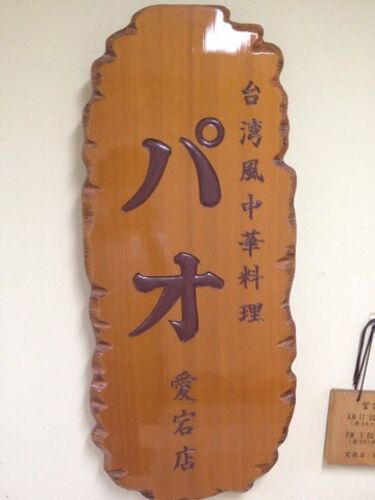 台湾風中華料理
パオ
愛宕店
AM 11:30
PM 5:00
定休日